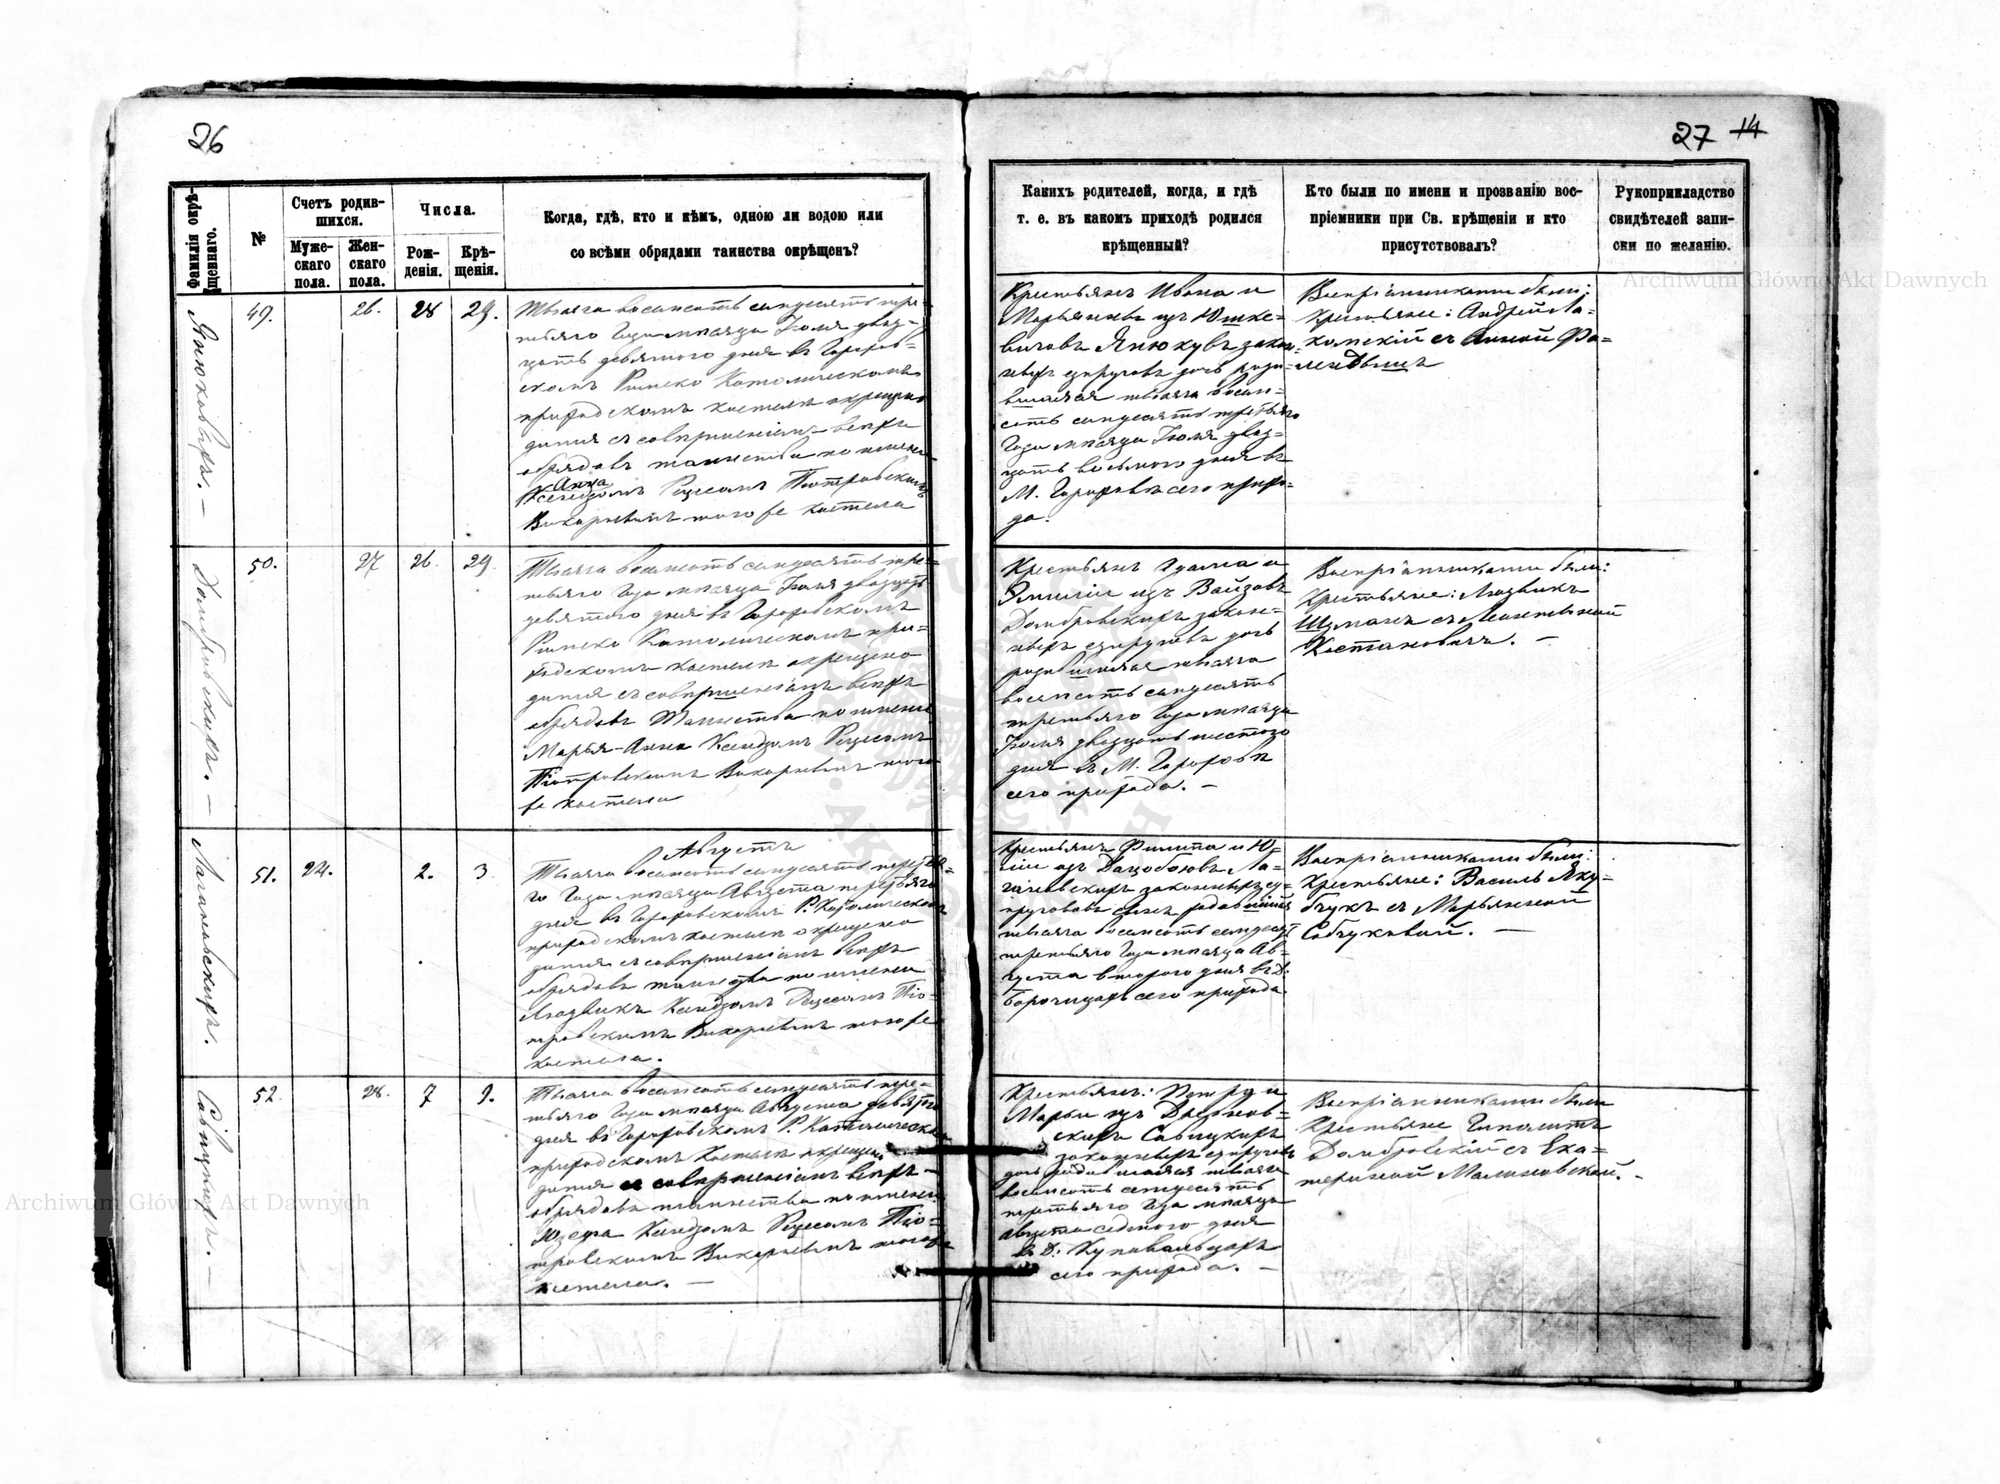 26
Фамиліи окрѣ-
щеннаго.
№
Счетъ родив-
шихся.
Муже-
скаго
пола.
Жен-
скаго
пола.
Числа.
Рож-
денія.
Крѣ-
щенія.
Когда, гдѣ, кто и кѣмъ, одною ли водою или
со всѣми обрядами таинства окрѣщенъ?
49.
26.
28
29.
Тысяча восемсотъ семдесятъ тре-
тьяго Года мѣсяца Іюля двад-
цать девятого дня въ Гороров-
скомъ Римско Католическомъ
приходскомъ костелѣ окрещено
дитя съ совершеніемъ всѣхъ
обрядовъ таинства по имени
Анна
Ксендзомъ Піотровскимъ
Викарыемъ того же костела
50.
27
26.
29.
Тысяча восемсотъ семдесятъ тре-
тьяго Года мѣсяца Іюля двадцать
девятого дня въ
Римско Католическомъ при-
ходскомъ костелѣ окрещено
дитя съ совершеніемъ всѣхъ
обрядовъ Таинства по имени
Марья-Анна Ксендзомъ
Піотровскимъ Викарыемъ того
же костела
51.
24.
2.
3
Августъ
Тысяча восемсотъ семдесятъ третья-
го Года мѣсяца Августа третьяго
дня въ Р. Католическомъ
приходскомъ костелѣ окрещено
дитя съ совершеніемъ всѣхъ
обрядовъ таинства по имени
Людвикъ Ксендзомъ Піо-
тровскимъ Викарыемъ того же
костела.
52.
28.
7
9.
Тысяча восемсотъ семдесятъ тре-
тьяго Года мѣсяца Августа девятого
дня въ Р. Католическомъ
приходскомъ Костелѣ окрещено
дитя съ совершеніемъ всѣхъ
обрядовъ таинства по имени
Юзефа Ксендзомъ Піо-
тровскимъ Викарыемъ того же
костела. —
27 14
Какихъ родителей, когда, и гдѣ
т. е. въ какомъ приходѣ родился
крѣщенный?
Кто были по имени и прозванію вос-
пріемники при Св. крѣщеніи и кто
присутствовалъ?
Рукоприкладство
свидѣтелей запи-
ски по желанію.
Крестьянъ Ивана и
Марьянны изъ Юшке-
вичовъ закон-
ныхъ супруговъ дочь роди-
вшаяся тысяча восем-
сотъ семдесятъ третьяго
Года мѣсяца Іюля двад-
цать восьмого дня въ
М. сего прихо-
да.
Воспріемниками были:
Крестьяне: Андрей
съ Анной
Крестьянъ Адама и
Эмиліи изъ
Домбровскихъ закон-
ныхъ супруговъ дочь
родившаяся тысяча
восемсотъ семдесятъ
третьяго Года мѣсяца
Іюля двадцать шестого
дня въ М.
сего прихода. —
Воспріемниками были:
Крестьяне: Людвикъ
Шуманъ съ
Костаковичъ. —
Крестьянъ Филипа и Ю-
ліи изъ
законныхъ су-
пруговъ сынъ родившійся
тысяча восемсотъ семдесятъ
третьяго Года мѣсяца Ав-
густа второго дня въ Д.
сего прихода
Воспріемниками были:
Крестьяне: Василь Яку-
бчукъ съ Марьянной
Собчуковой. —
Крестьянъ: Петра и
Марьи изъ
Савицкихъ
законныхъ супруговъ
дочь родившаяся тысяча
восемсотъ семдесятъ
третьяго Года мѣсяца
августа седмого дня
въ Д. Куповальцахъ
сего прихода. —
Воспріемниками были
Крестьяне Гиполитъ
Домбровскій съ Ека-
териной Малиновской. -
Archiwum Główne Akt Dawnych
Archiwum Główne Akt Dawnych